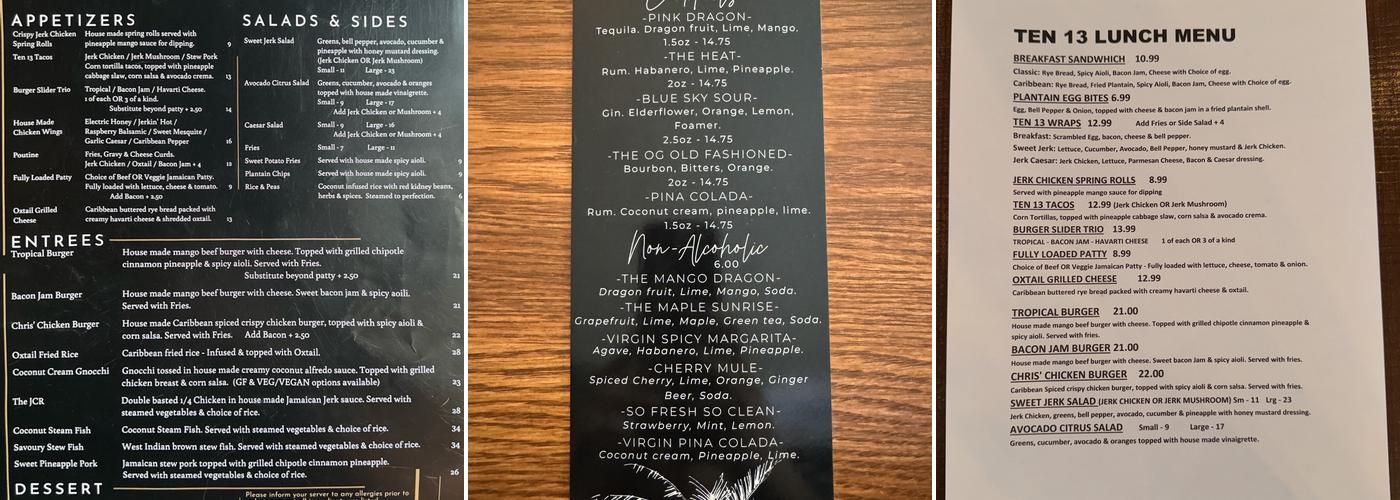 APPETIZERS
Crispy Jerk Chicken Spring Rolls
House made spring rolls served with
pineapple mango sauce for dipping. 9
Ten 13 Tacos
Jerk Chicken / Jerk Mushroom / Stew Pork
Corn tortilla tacos, topped with pineapple
cabbage slaw, corn salsa & avocado crema. 13
Burger Slider Trio
Tropical / Bacon Jam / Havarti Cheese.
1 of each OR 3 of a kind.
Substitute beyond patty + 2.50 14
House Made
Chicken Wings
Electric Honey / Jerkin' Hot /
Raspberry Balsamic / Sweet Mesquite /
Garlic Caesar / Caribbean Pepper 16
Poutine
Fries, Gravy & Cheese Curds.
Jerk Chicken / Oxtail / Bacon Jam + 4 12
Fully Loaded Patty
Choice of Beef OR Veggie Jamaican Patty.
Fully loaded with lettuce, cheese & tomato. 9
Add Bacon + 2.50
Oxtail Grilled
Cheese
Caribbean buttered rye bread packed with
creamy havarti cheese & shredded oxtail. 13
SALADS & SIDES
Sweet Jerk Salad
Greens, bell pepper, avocado, cucumber &
pineapple with honey mustard dressing.
(Jerk Chicken OR Jerk Mushroom)
Small - 11 Large - 23
Avocado Citrus Salad
Greens, cucumber, avocado & oranges
topped with house made vinaigrette.
Small - 9 Large - 17
Add Jerk Chicken or Mushroom + 4
Caesar Salad
Small - 9 Large - 16
Add Jerk Chicken or Mushroom + 4
Fries
Small - 7 Large - 11
Sweet Potato Fries
Served with house made spicy aioli. 9
Plantain Chips
Served with house made spicy aioli. 9
Rice & Peas
Coconut infused rice with red kidney beans,
herbs & spices. Steamed to perfection. 6
ENTREES
Tropical Burger
House made mango beef burger with cheese. Topped with grilled chipotle
cinnamon pineapple & spicy aioli. Served with Fries.
Substitute beyond patty + 2.50 21
Bacon Jam Burger
House made mango beef burger with cheese. Sweet bacon jam & spicy aoili.
Served with Fries. 21
Chris' Chicken Burger
House made Caribbean spiced crispy chicken burger, topped with spicy aioli &
corn salsa. Served with Fries. Add Bacon + 2.50 22
Oxtail Fried Rice
Caribbean fried rice - Infused & topped with Oxtail. 28
Coconut Cream Gnocchi
Gnocchi tossed in house made creamy coconut alfredo sauce. Topped with grilled
chicken breast & corn salsa. (GF & VEG/VEGAN options available) 23
The JCR
Double basted 1/4 Chicken in house made Jamaican Jerk sauce. Served with
steamed vegetables & choice of rice. 28
Coconut Steam Fish
Coconut Steam Fish. Served with steamed vegetables & choice of rice. 34
Savoury Stew Fish
West Indian brown stew fish. Served with steamed vegetables & choice of rice. 34
Sweet Pineapple Pork
Jamaican stew pork topped with grilled chipotle cinnamon pineapple.
Served with steamed vegetables & choice of rice. 26
DESSERT
Please inform your server to any allergies prior to
-PINK DRAGON-
Tequila. Dragon fruit, Lime, Mango.
1.5oz - 14.75
-THE HEAT-
Rum. Habanero, Lime, Pineapple.
2oz - 14.75
-BLUE SKY SOUR-
Gin. Elderflower, Orange, Lemon,
Foamer.
2.5oz - 14.75
-THE OG OLD FASHIONED-
Bourbon, Bitters, Orange.
2oz - 14.75
-PINA COLADA-
Rum. Coconut cream, pineapple, lime.
1.5oz - 14.75
Non-Alcoholic
6.00
-THE MANGO DRAGON-
Dragon fruit, Lime, Mango, Soda.
-THE MAPLE SUNRISE-
Grapefruit, Lime, Maple, Green tea, Soda.
-VIRGIN SPICY MARGARITA-
Agave, Habanero, Lime, Pineapple.
-CHERRY MULE-
Spiced Cherry, Lime, Orange, Ginger
Beer, Soda.
-SO FRESH SO CLEAN-
Strawberry, Mint, Lemon.
-VIRGIN PINA COLADA-
Coconut cream, Pineapple, Lime.
TEN 13 LUNCH MENU
BREAKFAST SANDWHICH 10.99
Classic: Rye Bread, Spicy Aioli, Bacon Jam, Cheese with Choice of egg.
Caribbean: Rye Bread, Fried Plantain, Spicy Aioli, Bacon Jam, Cheese with Choice of Egg.
PLANTAIN EGG BITES 6.99
Egg, Bell Pepper & Onion, topped with cheese & bacon jam in a fried plantain shell.
TEN 13 WRAPS 12.99 Add Fries or Side Salad + 4
Breakfast: Scrambled Egg, bacon, cheese & bell pepper.
Sweet Jerk: Lettuce, Cucumber, Avocado, Bell Pepper, honey mustard & Jerk Chicken.
Jerk Caesar: Jerk Chicken, Lettuce, Parmesan Cheese, Bacon & Caesar dressing.
JERK CHICKEN SPRING ROLLS 8.99
Served with pineapple mango sauce for dipping
TEN 13 TACOS 12.99 (Jerk Chicken OR Jerk Mushroom)
Corn Tortillas, topped with pineapple cabbage slaw, corn salsa & avocado crema.
BURGER SLIDER TRIO 13.99
TROPICAL - BACON JAM - HAVARTI CHEESE 1 of each OR 3 of a kind
FULLY LOADED PATTY 8.99
Choice of Beef OR Veggie Jamaican Patty - Fully loaded with lettuce, cheese, tomato & onion.
OXTAIL GRILLED CHEESE 12.99
Caribbean buttered rye bread packed with creamy havarti cheese & oxtail.
TROPICAL BURGER 21.00
House made mango beef burger with cheese. Topped with grilled chipotle cinnamon pineapple &
spicy aioli. Served with fries.
BACON JAM BURGER 21.00
House made mango beef burger with cheese. Sweet bacon Jam & spicy aioli. Served with fries.
CHRIS' CHICKEN BURGER 22.00
Caribbean Spiced crispy chicken burger, topped with spicy aioli & corn salsa. Served with Fries.
SWEET JERK SALAD (JERK CHICKEN OR JERK MUSHROOM) Sm - 11 Lrg - 23
Jerk Chicken, greens, bell pepper, avocado, cucumber & pineapple with honey mustard dressing.
AVOCADO CITRUS SALAD Small - 9 Large - 17
Greens, cucumber, avocado & oranges topped with house made vinaigrette.